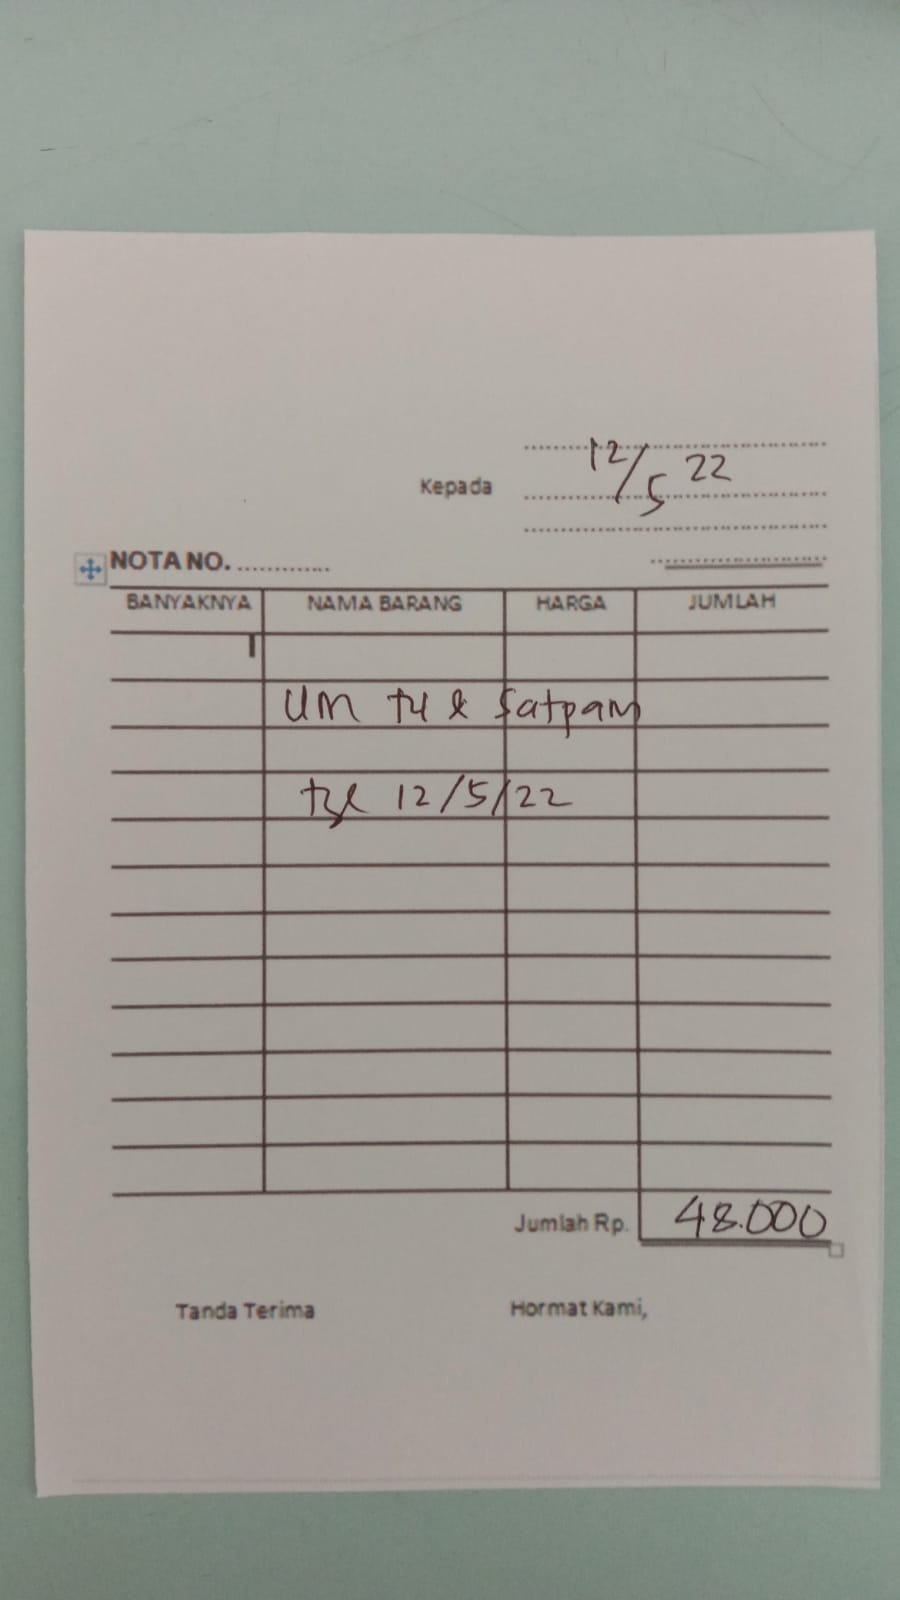 12/5 22
Kepada
NOTA NO. ............
BANYAKNYA NAMA BARANG HARGA JUMLAH
UM & Satpam
tgl 12/5/22
Jumlah Rp. 48.000
Tanda Terima Hormat Kami,